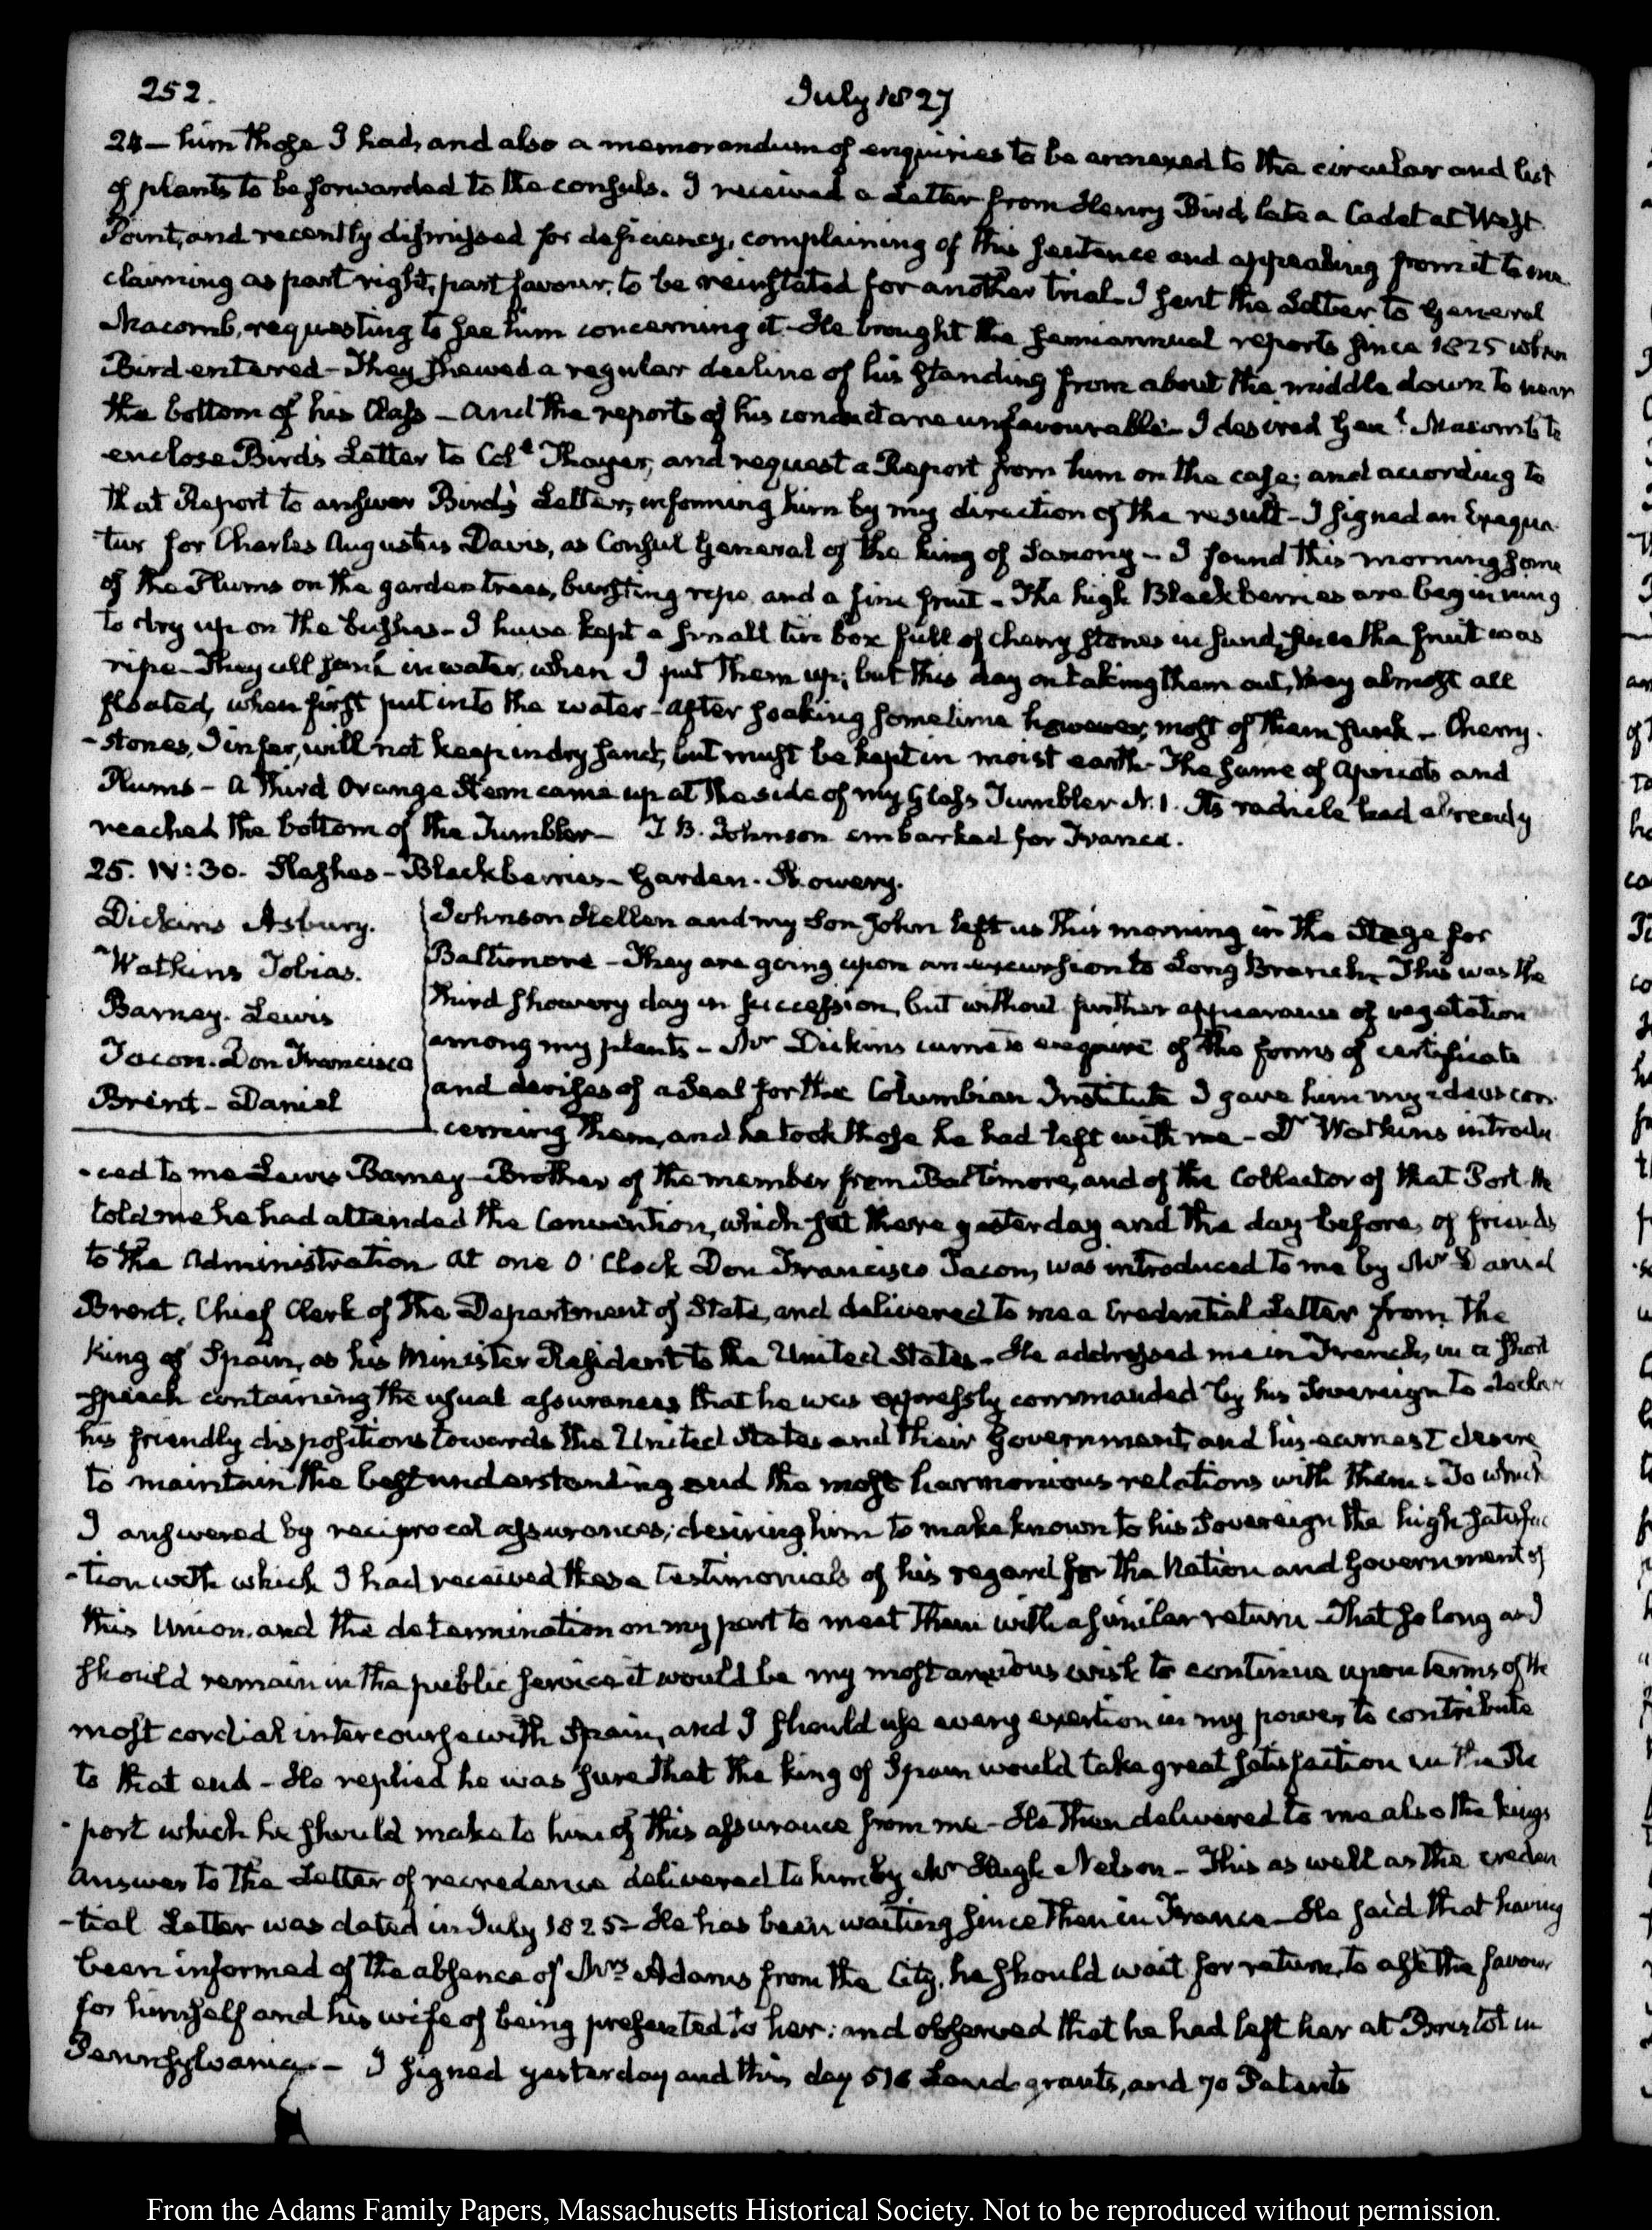 252.
July 1827
24 — him those I had, and also a memorandum of enquiries to be annexed to the circular and list
of plants to be forwarded to the consuls. I received a Letter from Henry Bird, late a Cadet at West
Point, and recently dismissed for deficiency, complaining of this sentence and appealing from it to me
claiming as part right, part favour, to be reinstated for another trial. I sent the Letter to General
Macomb, requesting to see him concerning it. He brought the semiannual reports since 1825 when
Bird entered - They shewed a regular decline of his standing from about the middle down to near
the bottom of his Class - and the reports of his conduct are unfavourable - I desired Genl. Macomb to
enclose Bird's Letter to Coll Thayer, and request a Report from him on the case; and according to
that Report to answer Bird's Letter, informing him by my direction of the result - I signed an Exequa-
tur for Charles Augustus Davis, as Consul General of the king of Saxony - I found this morning some
of the Plums on the garden trees, bursting ripe and a fine fruit - The high Blackberries are beginning
to dry up on the bushes - I have kept a small tin box full of cherry stones in sand, since the fruit was
ripe - They all sank in water, when I put them up; but this day on taking them out, they almost all
floated, when first put into the water - after soaking sometime however, most of them sunk - Cherry-
-stones, I infer, will not keep in dry sand, but must be kept in moist earth - The same of Apricots and
Plums - A third Orange Stem came up at the side of my Glass Tumbler N. 1. Its radicle had already
reached the bottom of the Tumbler - T B. Johnson embarked for France.
25. IV:30. Slashes - Blackberries - Garden. Showery.
Dickins Asbury.
Watkins Tobias.
Barney. Lewis
Tacon. Don Francisco
Brent - Daniel
Johnson Hellen and my Son John left us this morning in the Stage for
Baltimore - They are going upon an excursion to Long Branch - This was the
third showery day in succession, but without further appearance of vegetation
among my plants - Mr Dickins came to enquire of the forms of certificate
and devises of a Seal for the Columbian Institute I gave him my ideas con-
cerning them, and he took those he had left with me - Dr Watkins introdu
-ced to me Lewis Barney - Brother of the member from Baltimore, and of the Collector of that Port. He
told me he had attended the Convention, which sat there yesterday and the day before, of friends
to the Administration At one O'Clock Don Francisco Tacon, was introduced to me by Mr Daniel
Brent, Chief Clerk of the Department of State, and delivered to me a Credential Letter from the
King of Spain, as his Minister Resident to the United States - He addressed me in French, in a short
speech containing the usual assurances that he was expressly commanded by his Sovereign to declare
his friendly dispositions towards the United States and their Government, and his earnest desire
to maintain the best understanding and the most harmonious relations with them - To which
I answered by reciprocal assurances; desiring him to make known to his Sovereign the high satisfac
-tion with which I had received these testimonials of his regard for the Nation and Government of
this Union, and the determination on my part to meet them with a similar return - That so long as I
should remain in the public service it would be my most anxious wish to continue upon terms of the
most cordial intercourse with Spain, and I should use every exertion in my power, to contribute
to that end - He replied he was sure that the king of Spain would take great satisfaction in the Re
-port which he should make to him of this assurance from me - He then delivered to me also the kings
answer to the Letter of recredence delivered to him by Mr Hugh Nelson - This as well as the creden
-tial Letter was dated in July 1825 - He has been waiting since then in France - He said that having
been informed of the absence of Mrs Adams from the City, he should wait for return, to ask the favour
for himself and his wife of being presented to her: and observed that he had left her at Bristol in
Pennsylvania - I signed yesterday and this day 516 Land grants, and 70 Patents
From the Adams Family Papers, Massachusetts Historical Society. Not to be reproduced without permission.